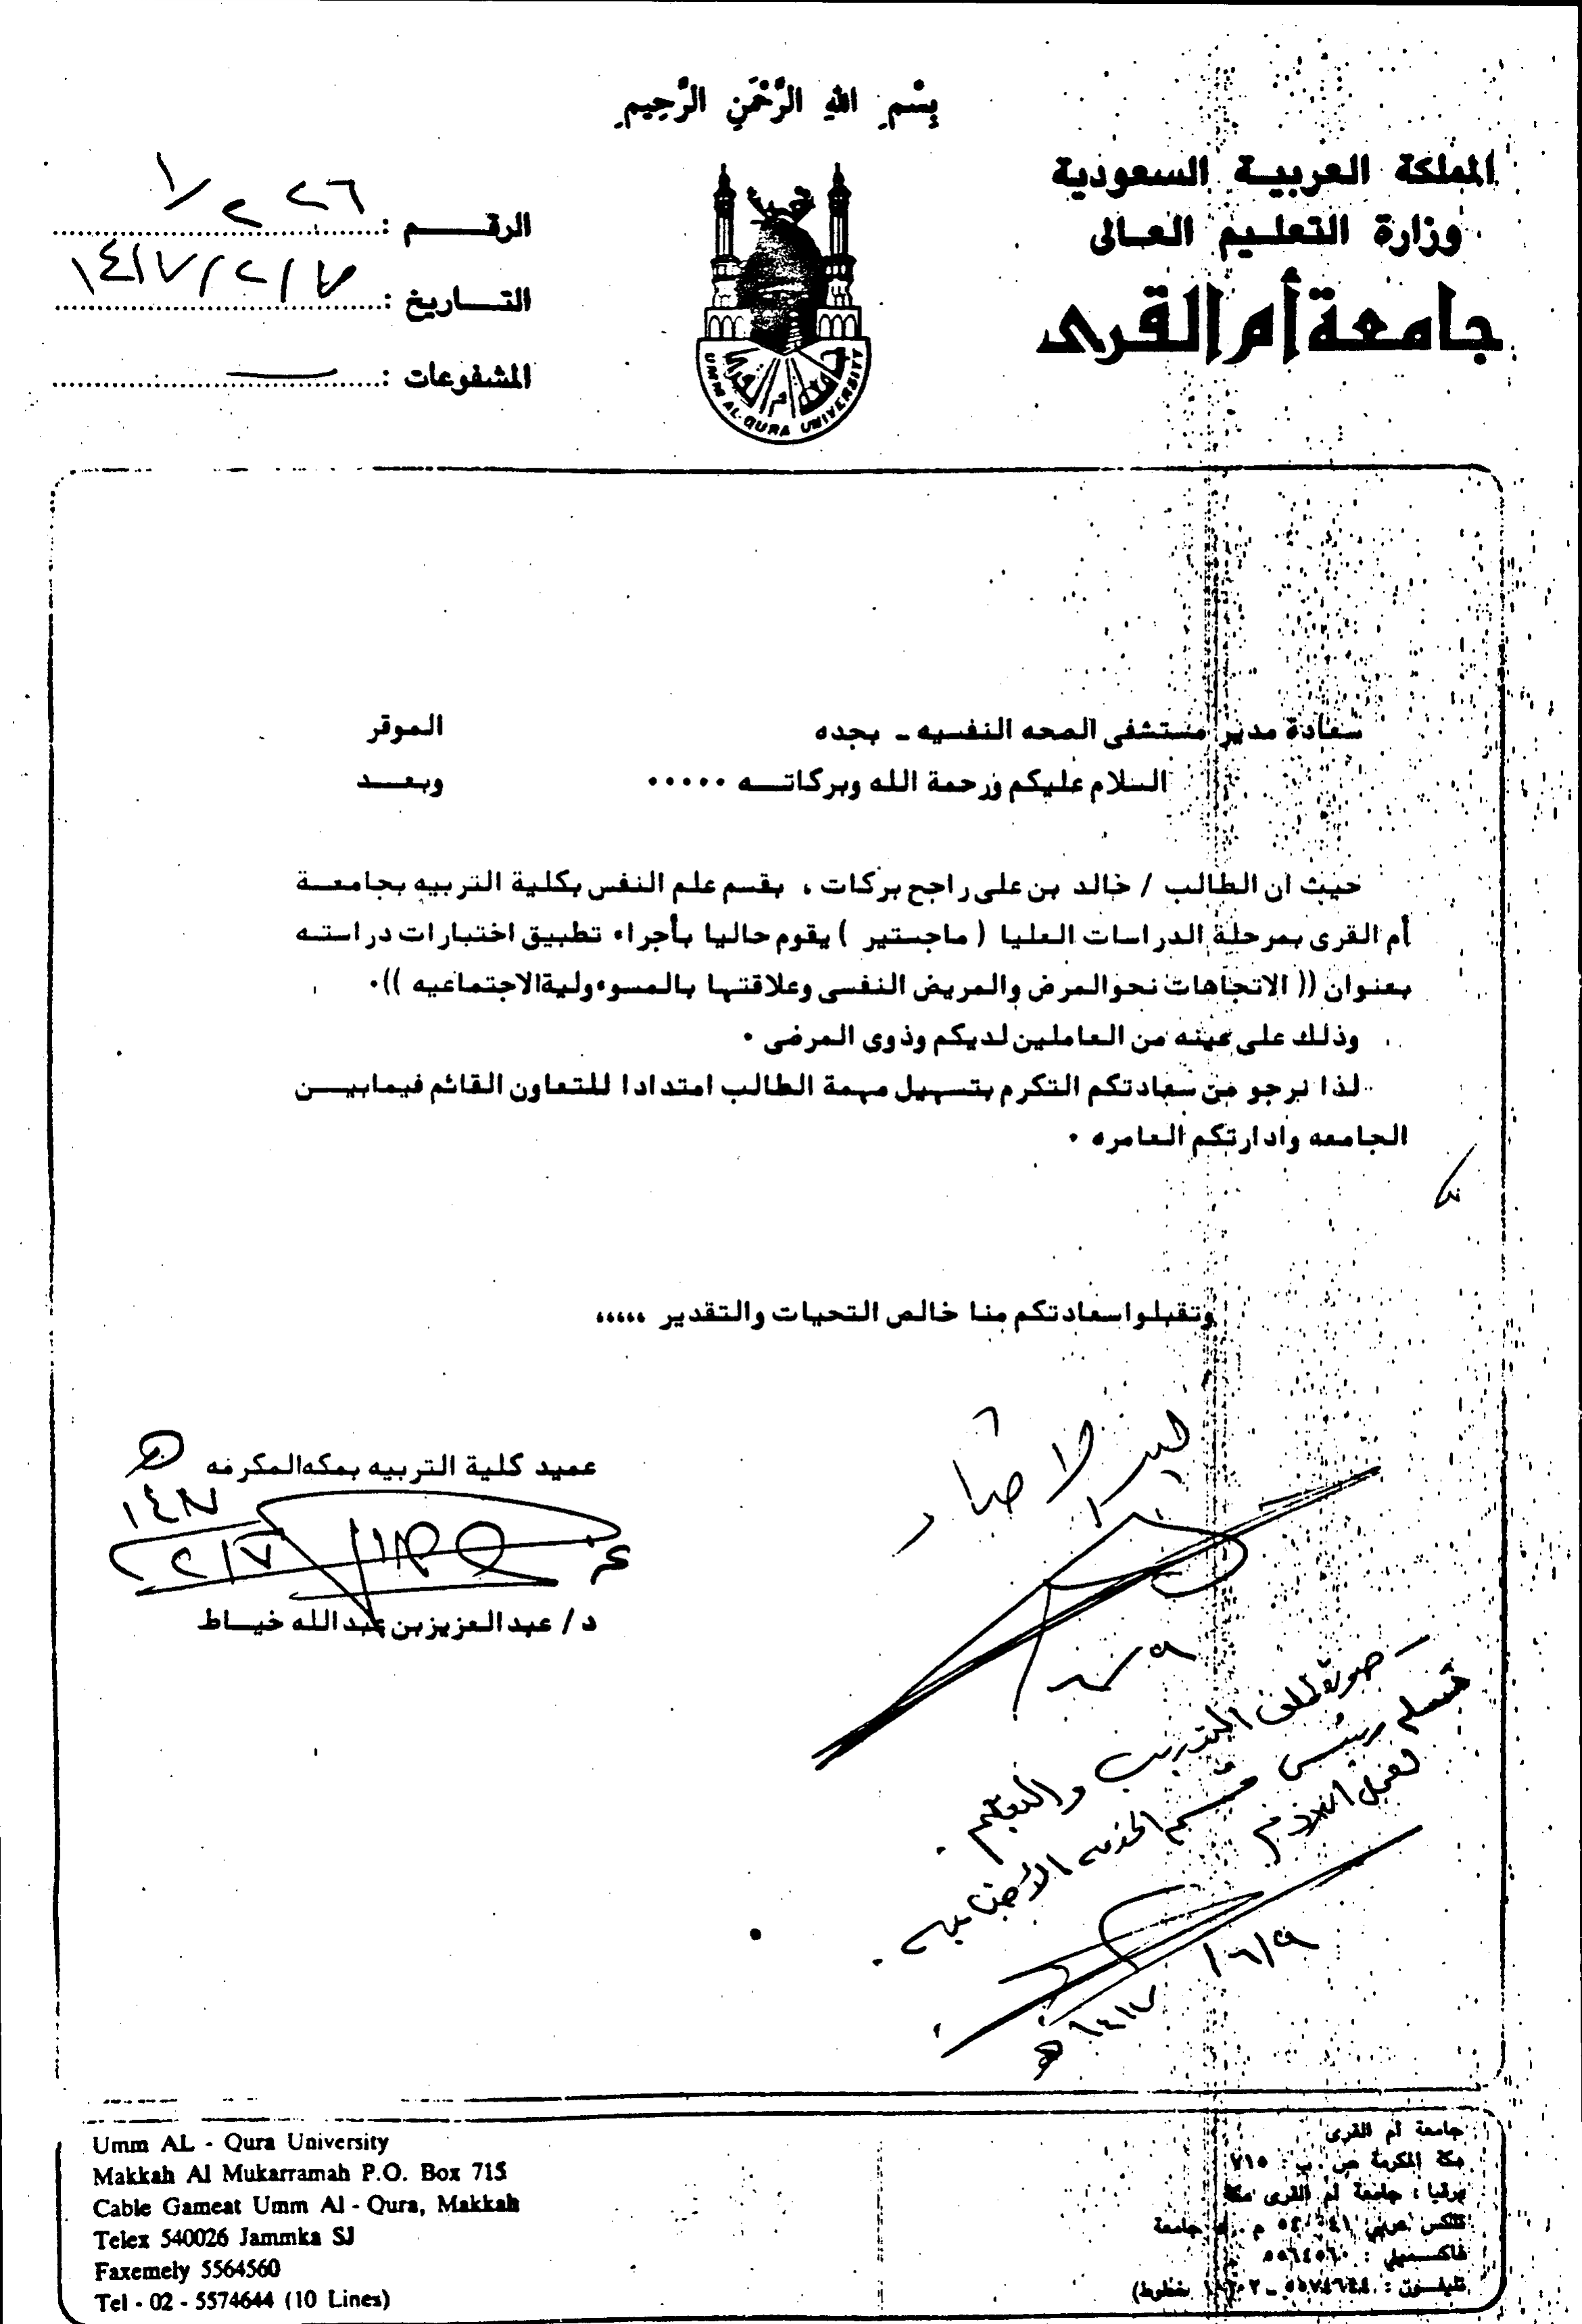 بِسْمِ اللهِ الرَّحْمَنِ الرَّحِيمِ
المملكة العربيــة السعودية
وزارة التعلـيم العـالى
جامعة أم القرى
الرقــــــم :
التــــاريخ : ١٤١٧/٢/٧
المشفوعات :
UMM AL-QURA UNIVERSITY
سعادة مدير مستشفى الصحه النفسيه ـ بجده الموقر
السلام عليكم ورحمة الله وبركاتــه ٠٠٠٠٠ وبعــــد
حيث ان الطالب / خالد بن على راجح بركات ، بقسم علم النفس بكلية التربيه بجامعــة
أم القرى بمرحلة الدراسات العليا ( ماجستير ) يقوم حاليا بأجراء تطبيق اختبارات دراستــه
بعنوان (( الاتجاهات نحو المرض والمريض النفسى وعلاقتها بالمسوءولية الاجتماعيه ))٠
وذلك على عينه من العاملين لديكم وذوى المرضى ٠
لذا نرجو من سعادتكم التكرم بتسهيل مهمة الطالب امتدادا للتعاون القائم فيمابيــن
الجامعه وادارتكم العامره ٠
وتقبلوا سعادتكم منا خالص التحيات والتقدير ،،،،،
عميد كلية التربيه بمكه المكرمه
١٤١٧
٢/٧
د/ عبد العزيز بن عبد الله خيــاط
صورة لملف التدريب والتعليم .
رئيس قسم الخدمه الأجتماعيه .
لعمل اللازم
٦/٩
١٤١٧ هـ
Umm AL - Qura University
Makkah Al Mukarramah P.O. Box 715
Cable Gameat Umm Al - Qura, Makkah
Telex 540026 Jammka SJ
Faxemely 5564560
Tel - 02 - 5574644 (10 Lines)
جامعة أم القرى
مكة المكرمة ص . ب : ٧١٥
برقيا : جامعة أم القرى مكة
تلكس عربي م . جامعة
فاكسميلي : ٥٥٦٤٥٦٠
تليفــون : ٥٥٧٤٦٤٤ خطوط)